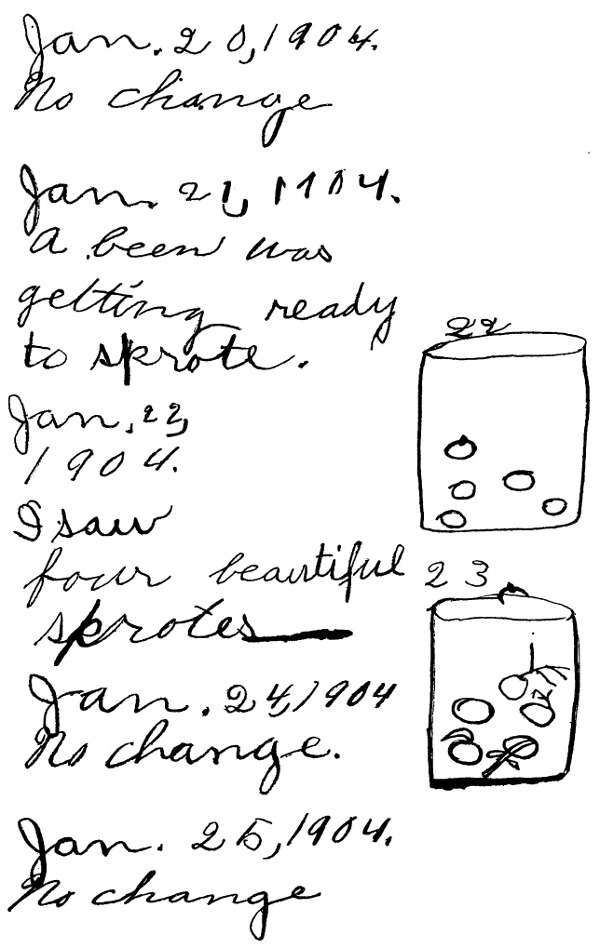 Jan. 20, 1904.
No change
Jan. 21, 1904.
A been was
getting ready
to sprote.
22
Jan. 22,
1904.
I saw
four beautiful
sprotes
23
Jan. 24, 1904
No change.
Jan. 25, 1904.
No change